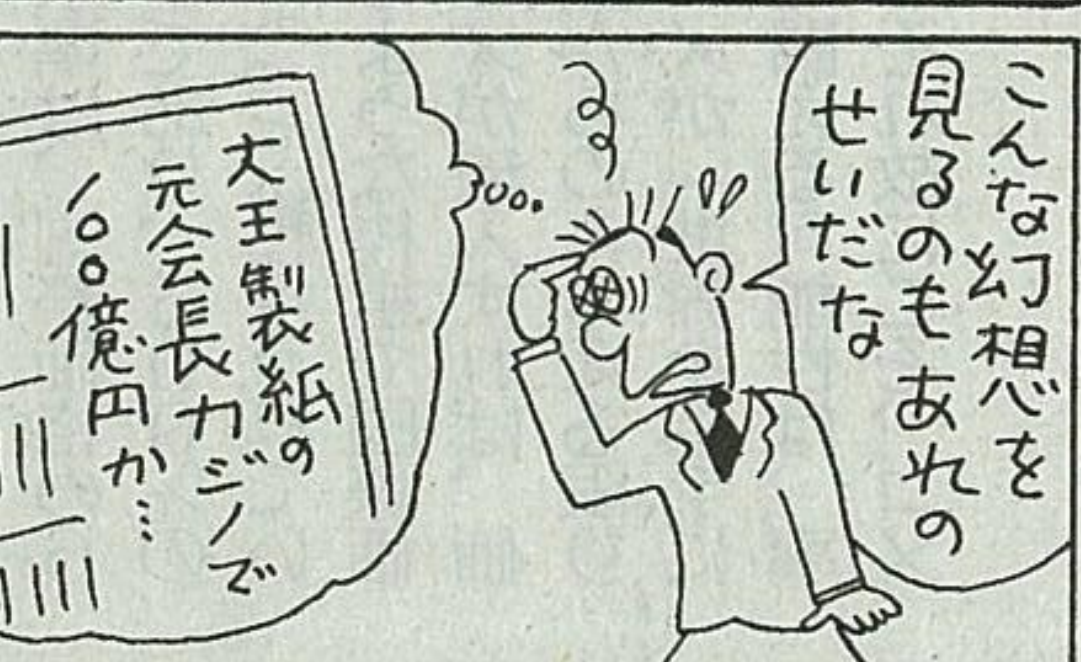 こんな幻想を
見るのもあれの
せいだな
大王製紙の
元会長カジノで
100億円か…